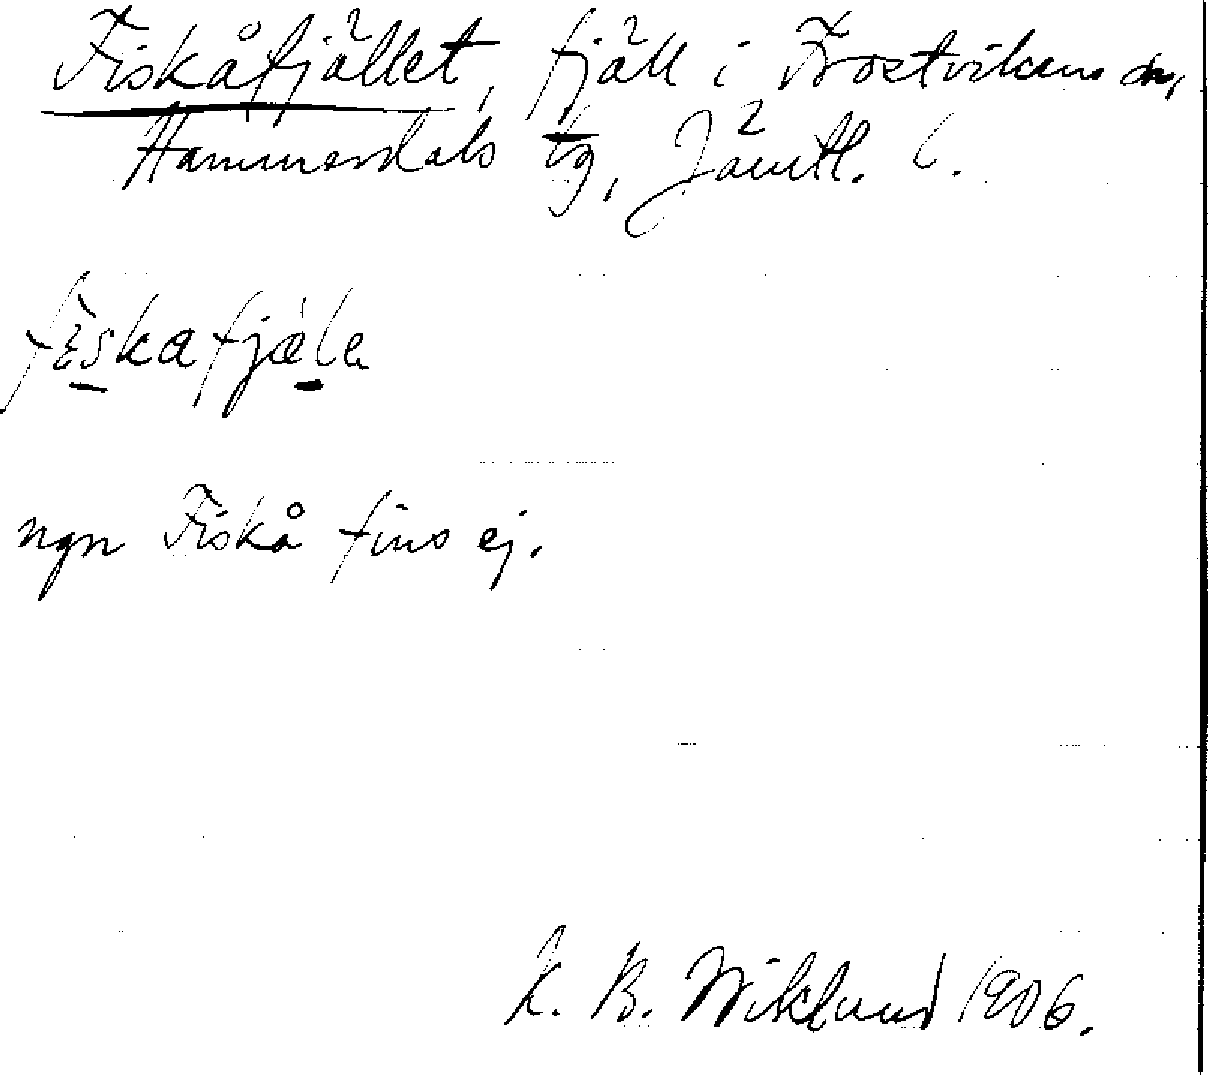 Fiskåfjället, fjäll i Frostvikens sn,
Hammerdals tg, Jämtl. l.
fèskafjæ̀la
ngn Fiskå fins ej.
K. B. Wiklund 1906.